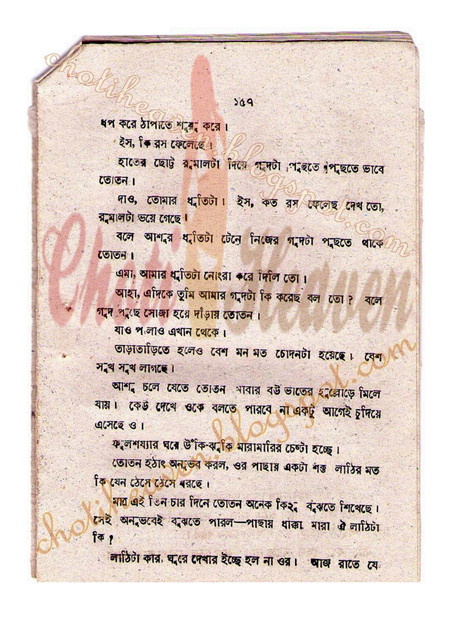 ১৫৭
ধপ করে ঠাপাতে শুরু করে।
ইস, কি রস ফেলেছে।
হাতের ছোট্ট রুমালটা দিয়ে গুদটা পুছতে পুছতে ভাবে
তোতন।
দাও, তোমার ধুতিটা। ইস, কত রস ফেলেছ দেখ তো,
রুমালটা ভরে গেছে।
বলে আশুর ধুতিটা টেনে নিজের গুদটা পুছতে থাকে
তোতন।
এমা, আমার ধুতিটা নোংরা করে দিলি তো।
আহা, এদিকে তুমি আমার গুদটা কি করেছ বল তো? বলে
গুদ পুছে সোজা হয়ে দাঁড়ায় তোতন।
যাও পালাও এখান থেকে।
তাড়াতাড়িতে হলেও বেশ মন মত চোদনটা হয়েছে। বেশ
সুখ সুখ লাগছে।
আশু চলে যেতে তোতন আবার বউ ভাতের হুল্লোড়ে মিলে
যায়। কেউ দেখে ওকে বলতে পারবে না একটু আগেই চুদিয়ে
এসেছে ও।
ফুলশয্যার ঘরে উঁকি-ঝুকি মারামারির চেষ্টা হচ্ছে।
তোতন হঠাৎ অনুভব করল, ওর পাছায় একটা শক্ত লাঠির মত
কি যেন ঠেসে ঠেসে ধরছে।
মাত্র এই তিন চার দিনে তোতন অনেক কিছু বুঝতে শিখেছে।
সেই অনুভবেই বুঝতে পারল—পাছায় ধাক্কা মারা ঐ লাঠিটা
কি?
লাঠিটা কার, ঘুরে দেখার ইচ্ছে হল না ওর। আজ রাতে যে
Choti Heaven
chotiheaven.blogspot.com
chotiheaven.blogspot.com